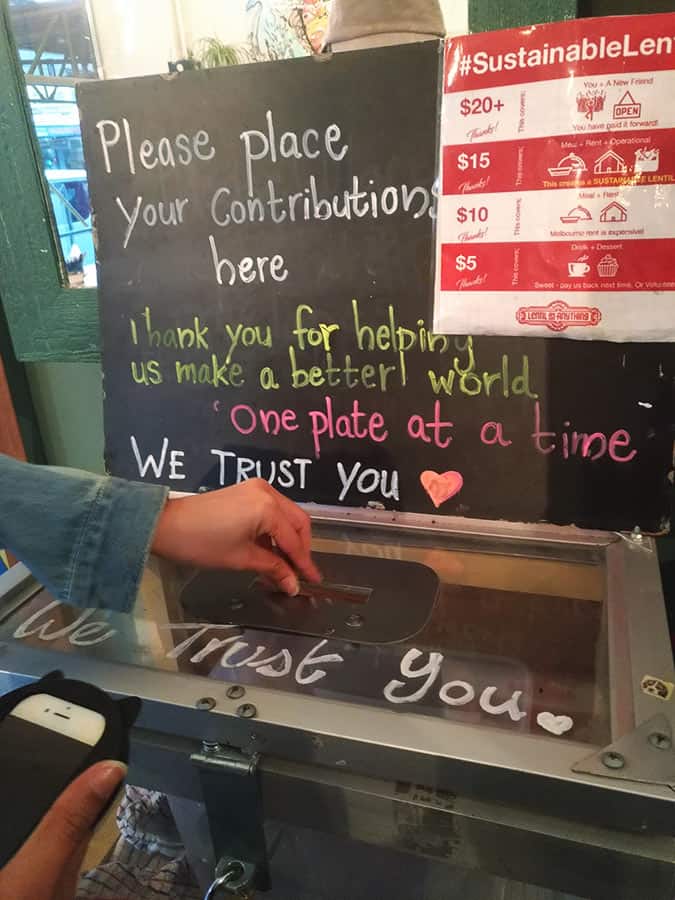 Please place
your Contributions
here
Thank you for helping
us make a better world
One plate at a time
WE TRUST YOU
#SustainableLen
$20+
Thanks!
This covers:
You + A New Friend
OPEN
You have paid it forward!
$15
Thanks!
This covers:
Meal + Rent + Operational
This creates a SUSTAINABLE LENTIL
$10
Thanks!
This covers:
Meal + Rent
Melbourne rent is expensive!
$5
Thanks!
This covers:
Drink + Dessert
Sweet - pay us back next time, Or Volunteer
LENTIL AS ANYTHING
We Trust You